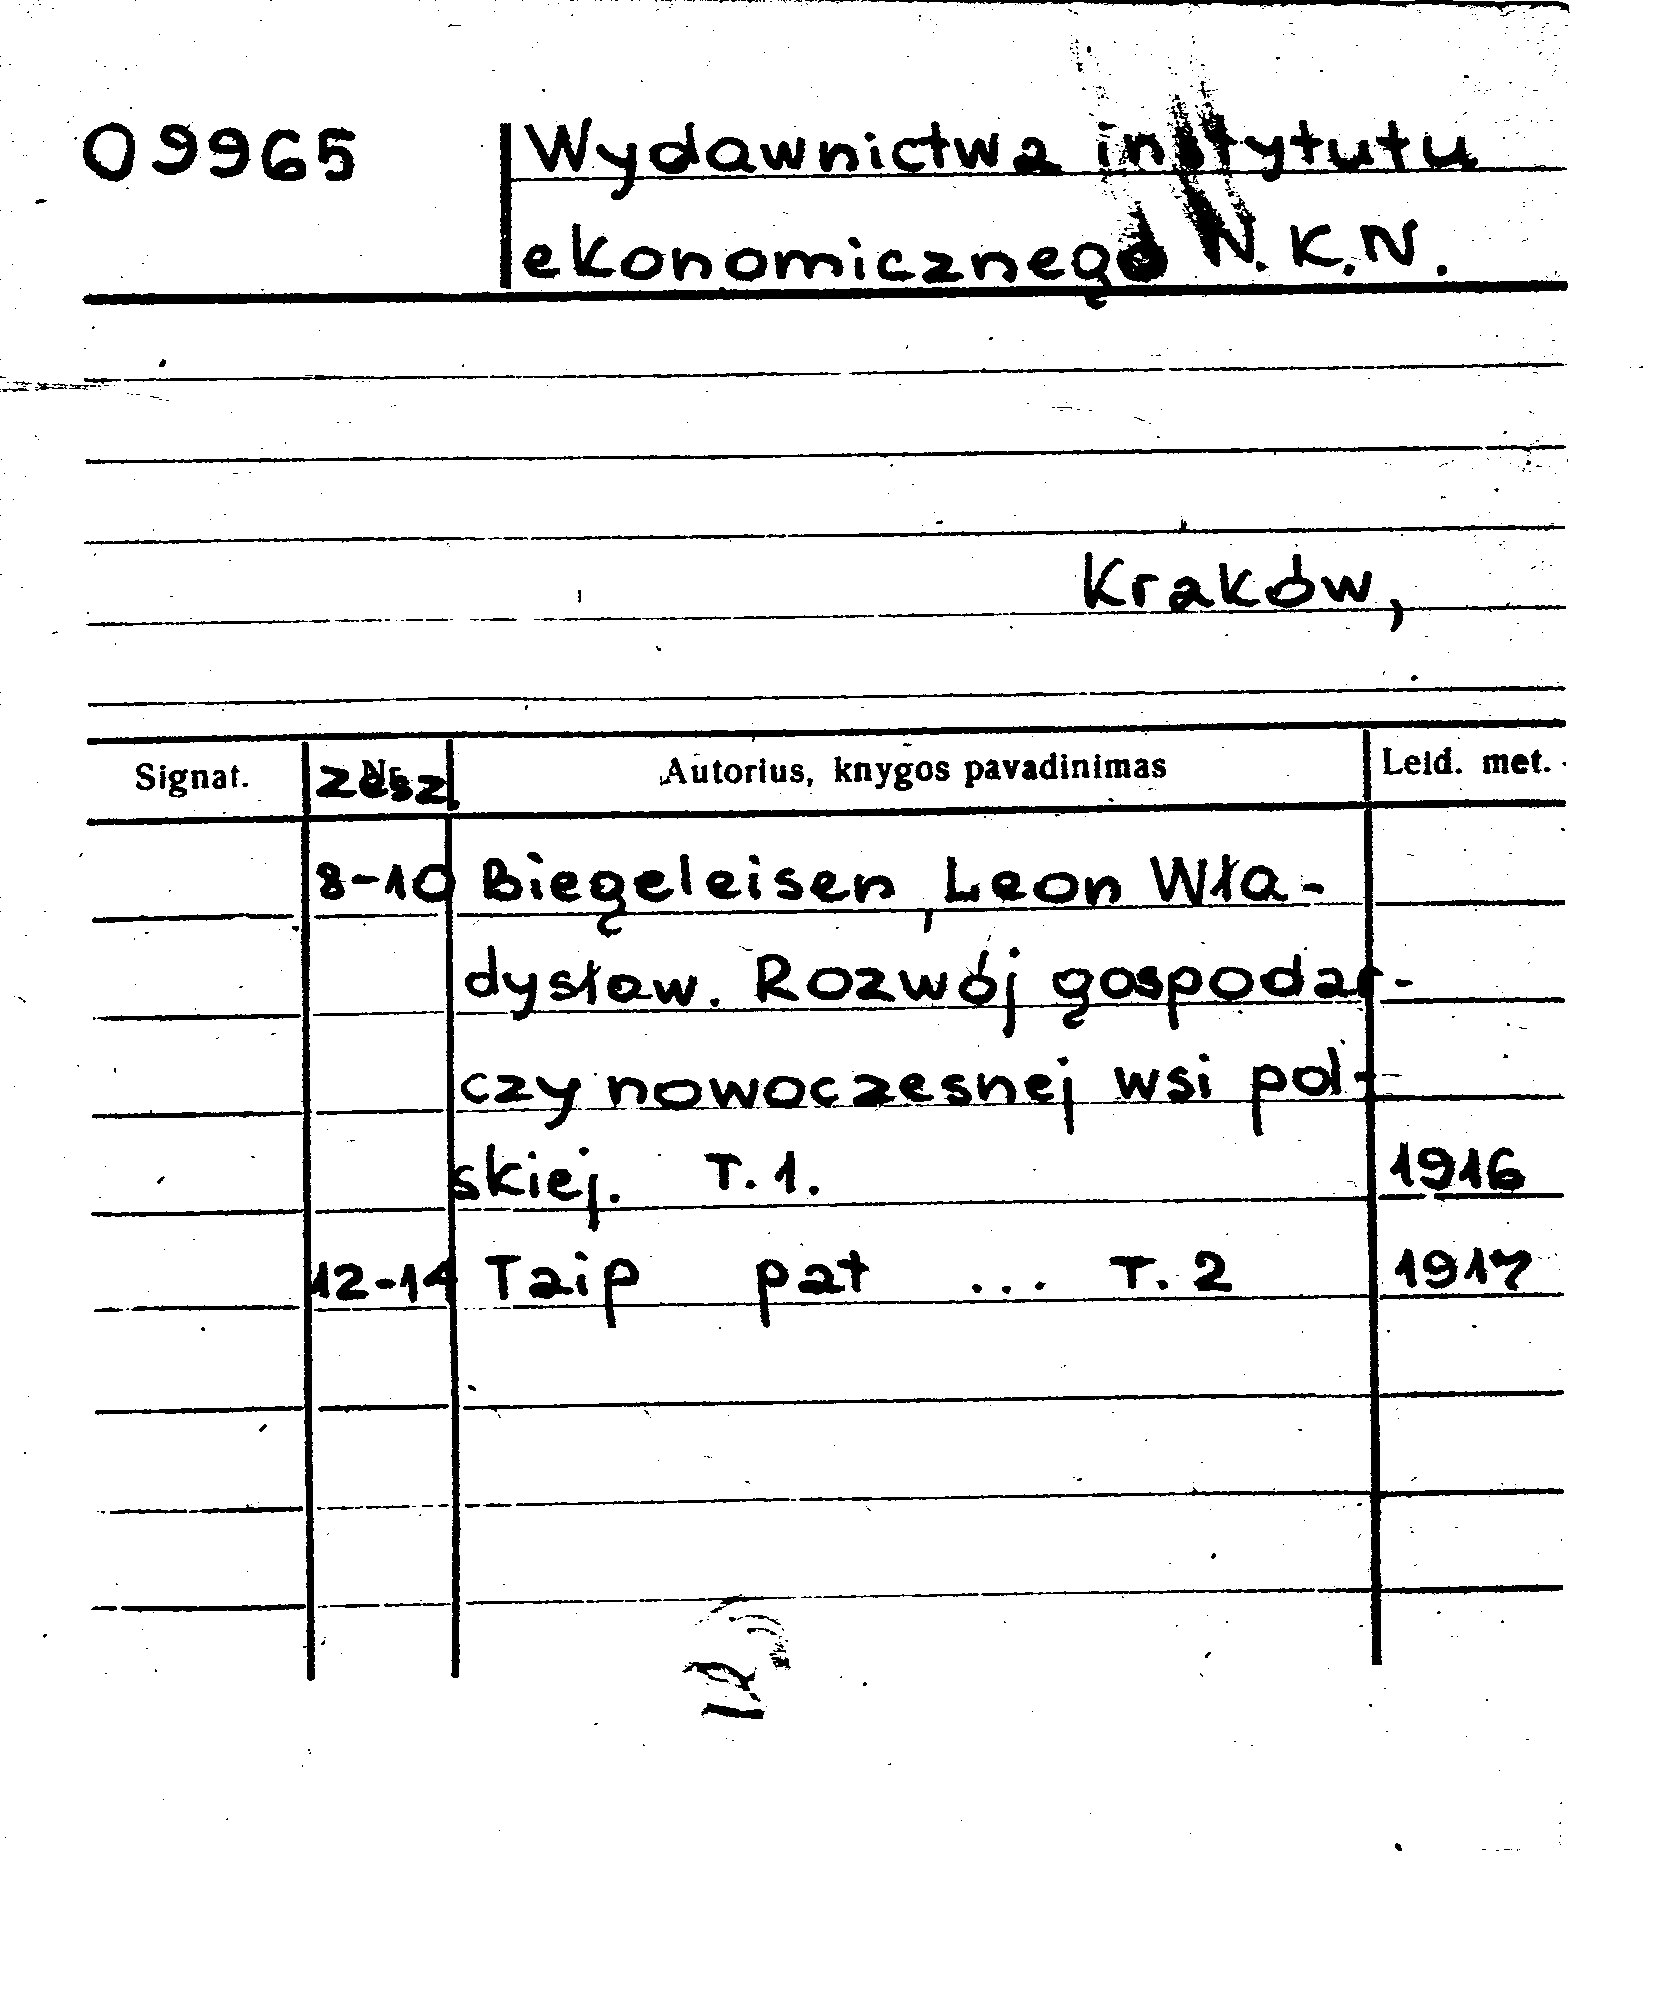 09965 Wydawnictwa instytutu
ekonomicznego N.K.N.
Kraków,
Signat. Zesz. Autorius, knygos pavadinimas Leid. met.
8-10 Biegeleisen, Leon Wła-
dysław. Rozwój gospodar-
czy nowoczesnej wsi pol-
skiej. T.1. 1916
12-14 Taip pat ... T.2 1917